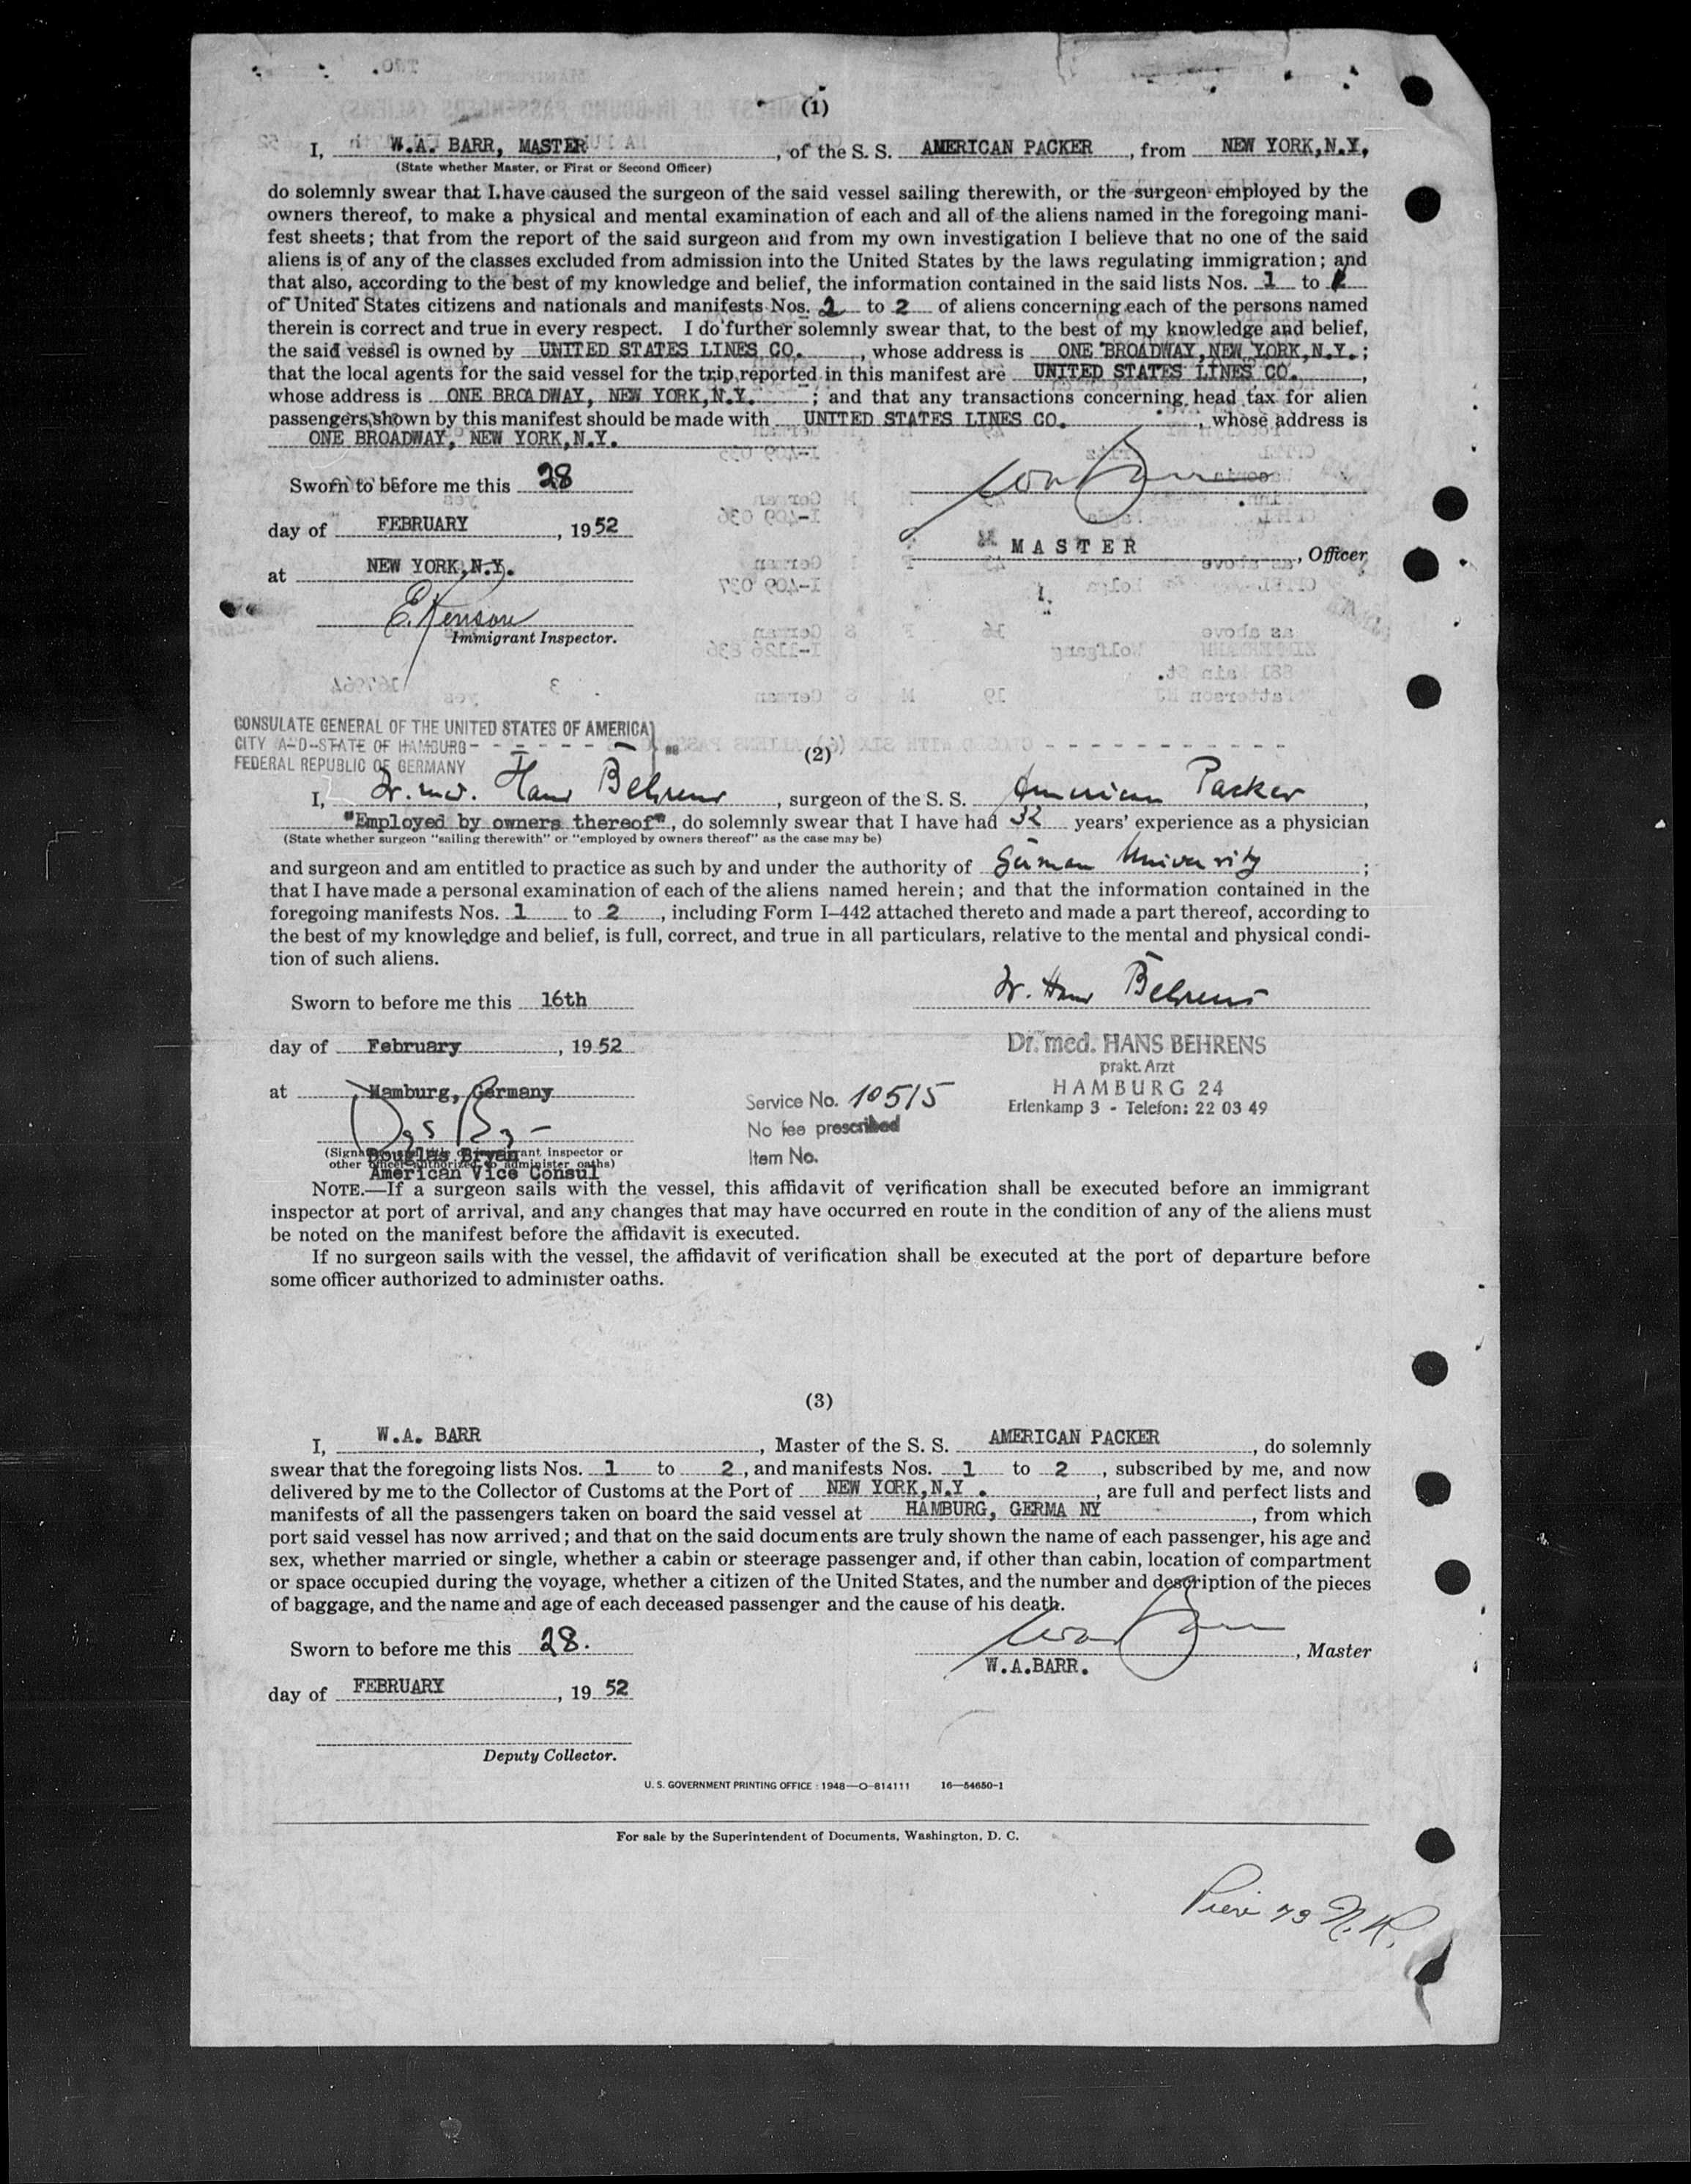 (1)
I, W.A. BARR, MASTER, of the S. S. AMERICAN PACKER, from NEW YORK, N.Y,
(State whether Master, or First or Second Officer)
do solemnly swear that I have caused the surgeon of the said vessel sailing therewith, or the surgeon employed by the
owners thereof, to make a physical and mental examination of each and all of the aliens named in the foregoing mani-
fest sheets; that from the report of the said surgeon and from my own investigation I believe that no one of the said
aliens is of any of the classes excluded from admission into the United States by the laws regulating immigration; and
that also, according to the best of my knowledge and belief, the information contained in the said lists Nos. 1 to
of United States citizens and nationals and manifests Nos. to 2 of aliens concerning each of the persons named
therein is correct and true in every respect. I do further solemnly swear that, to the best of my knowledge and belief,
the said vessel is owned by UNITED STATES LINES CO., whose address is ONE BROADWAY, NEW YORK, N.Y.;
that the local agents for the said vessel for the trip reported in this manifest are UNITED STATES LINES CO.,
whose address is ONE BROADWAY, NEW YORK, N.Y.; and that any transactions concerning head tax for alien
passengers shown by this manifest should be made with UNITED STATES LINES CO., whose address is
ONE BROADWAY, NEW YORK, N.Y.
Sworn to before me this 28
day of FEBRUARY, 1952
MASTER, Officer
at NEW YORK, N.Y.
Immigrant Inspector.
CONSULATE GENERAL OF THE UNITED STATES OF AMERICA
CITY AND STATE OF HAMBURG
FEDERAL REPUBLIC OF GERMANY
(2)
I, Dr. med. Hans Behrens, surgeon of the S. S. American Packer,
"Employed by owners thereof", do solemnly swear that I have had 32 years' experience as a physician
(State whether surgeon "sailing therewith" or "employed by owners thereof" as the case may be)
and surgeon and am entitled to practice as such by and under the authority of German University;
that I have made a personal examination of each of the aliens named herein; and that the information contained in the
foregoing manifests Nos. 1 to 2, including Form I-442 attached thereto and made a part thereof, according to
the best of my knowledge and belief, is full, correct, and true in all particulars, relative to the mental and physical condi-
tion of such aliens.
Dr. Hans Behrens
Sworn to before me this 16th
day of February, 1952
Dr. med. HANS BEHRENS
prakt. Arzt
HAMBURG 24
Erlenkamp 3 - Telefon: 22 03 49
at Hamburg, Germany
Service No. 10515
No fee prescribed
Item No.
(Signature and title of immigrant inspector or
other officer authorized to administer oaths)
Douglas Bryan
American Vice Consul
NOTE.—If a surgeon sails with the vessel, this affidavit of verification shall be executed before an immigrant
inspector at port of arrival, and any changes that may have occurred en route in the condition of any of the aliens must
be noted on the manifest before the affidavit is executed.
If no surgeon sails with the vessel, the affidavit of verification shall be executed at the port of departure before
some officer authorized to administer oaths.
(3)
I, W.A. BARR, Master of the S. S. AMERICAN PACKER, do solemnly
swear that the foregoing lists Nos. 1 to 2, and manifests Nos. 1 to 2, subscribed by me, and now
delivered by me to the Collector of Customs at the Port of NEW YORK, N.Y., are full and perfect lists and
manifests of all the passengers taken on board the said vessel at HAMBURG, GERMA NY, from which
port said vessel has now arrived; and that on the said documents are truly shown the name of each passenger, his age and
sex, whether married or single, whether a cabin or steerage passenger and, if other than cabin, location of compartment
or space occupied during the voyage, whether a citizen of the United States, and the number and description of the pieces
of baggage, and the name and age of each deceased passenger and the cause of his death.
Sworn to before me this 28.
, Master
W.A.BARR.
day of FEBRUARY, 19 52
Deputy Collector.
U. S. GOVERNMENT PRINTING OFFICE : 1948—O-814111 16—54650-1
For sale by the Superintendent of Documents, Washington, D. C.